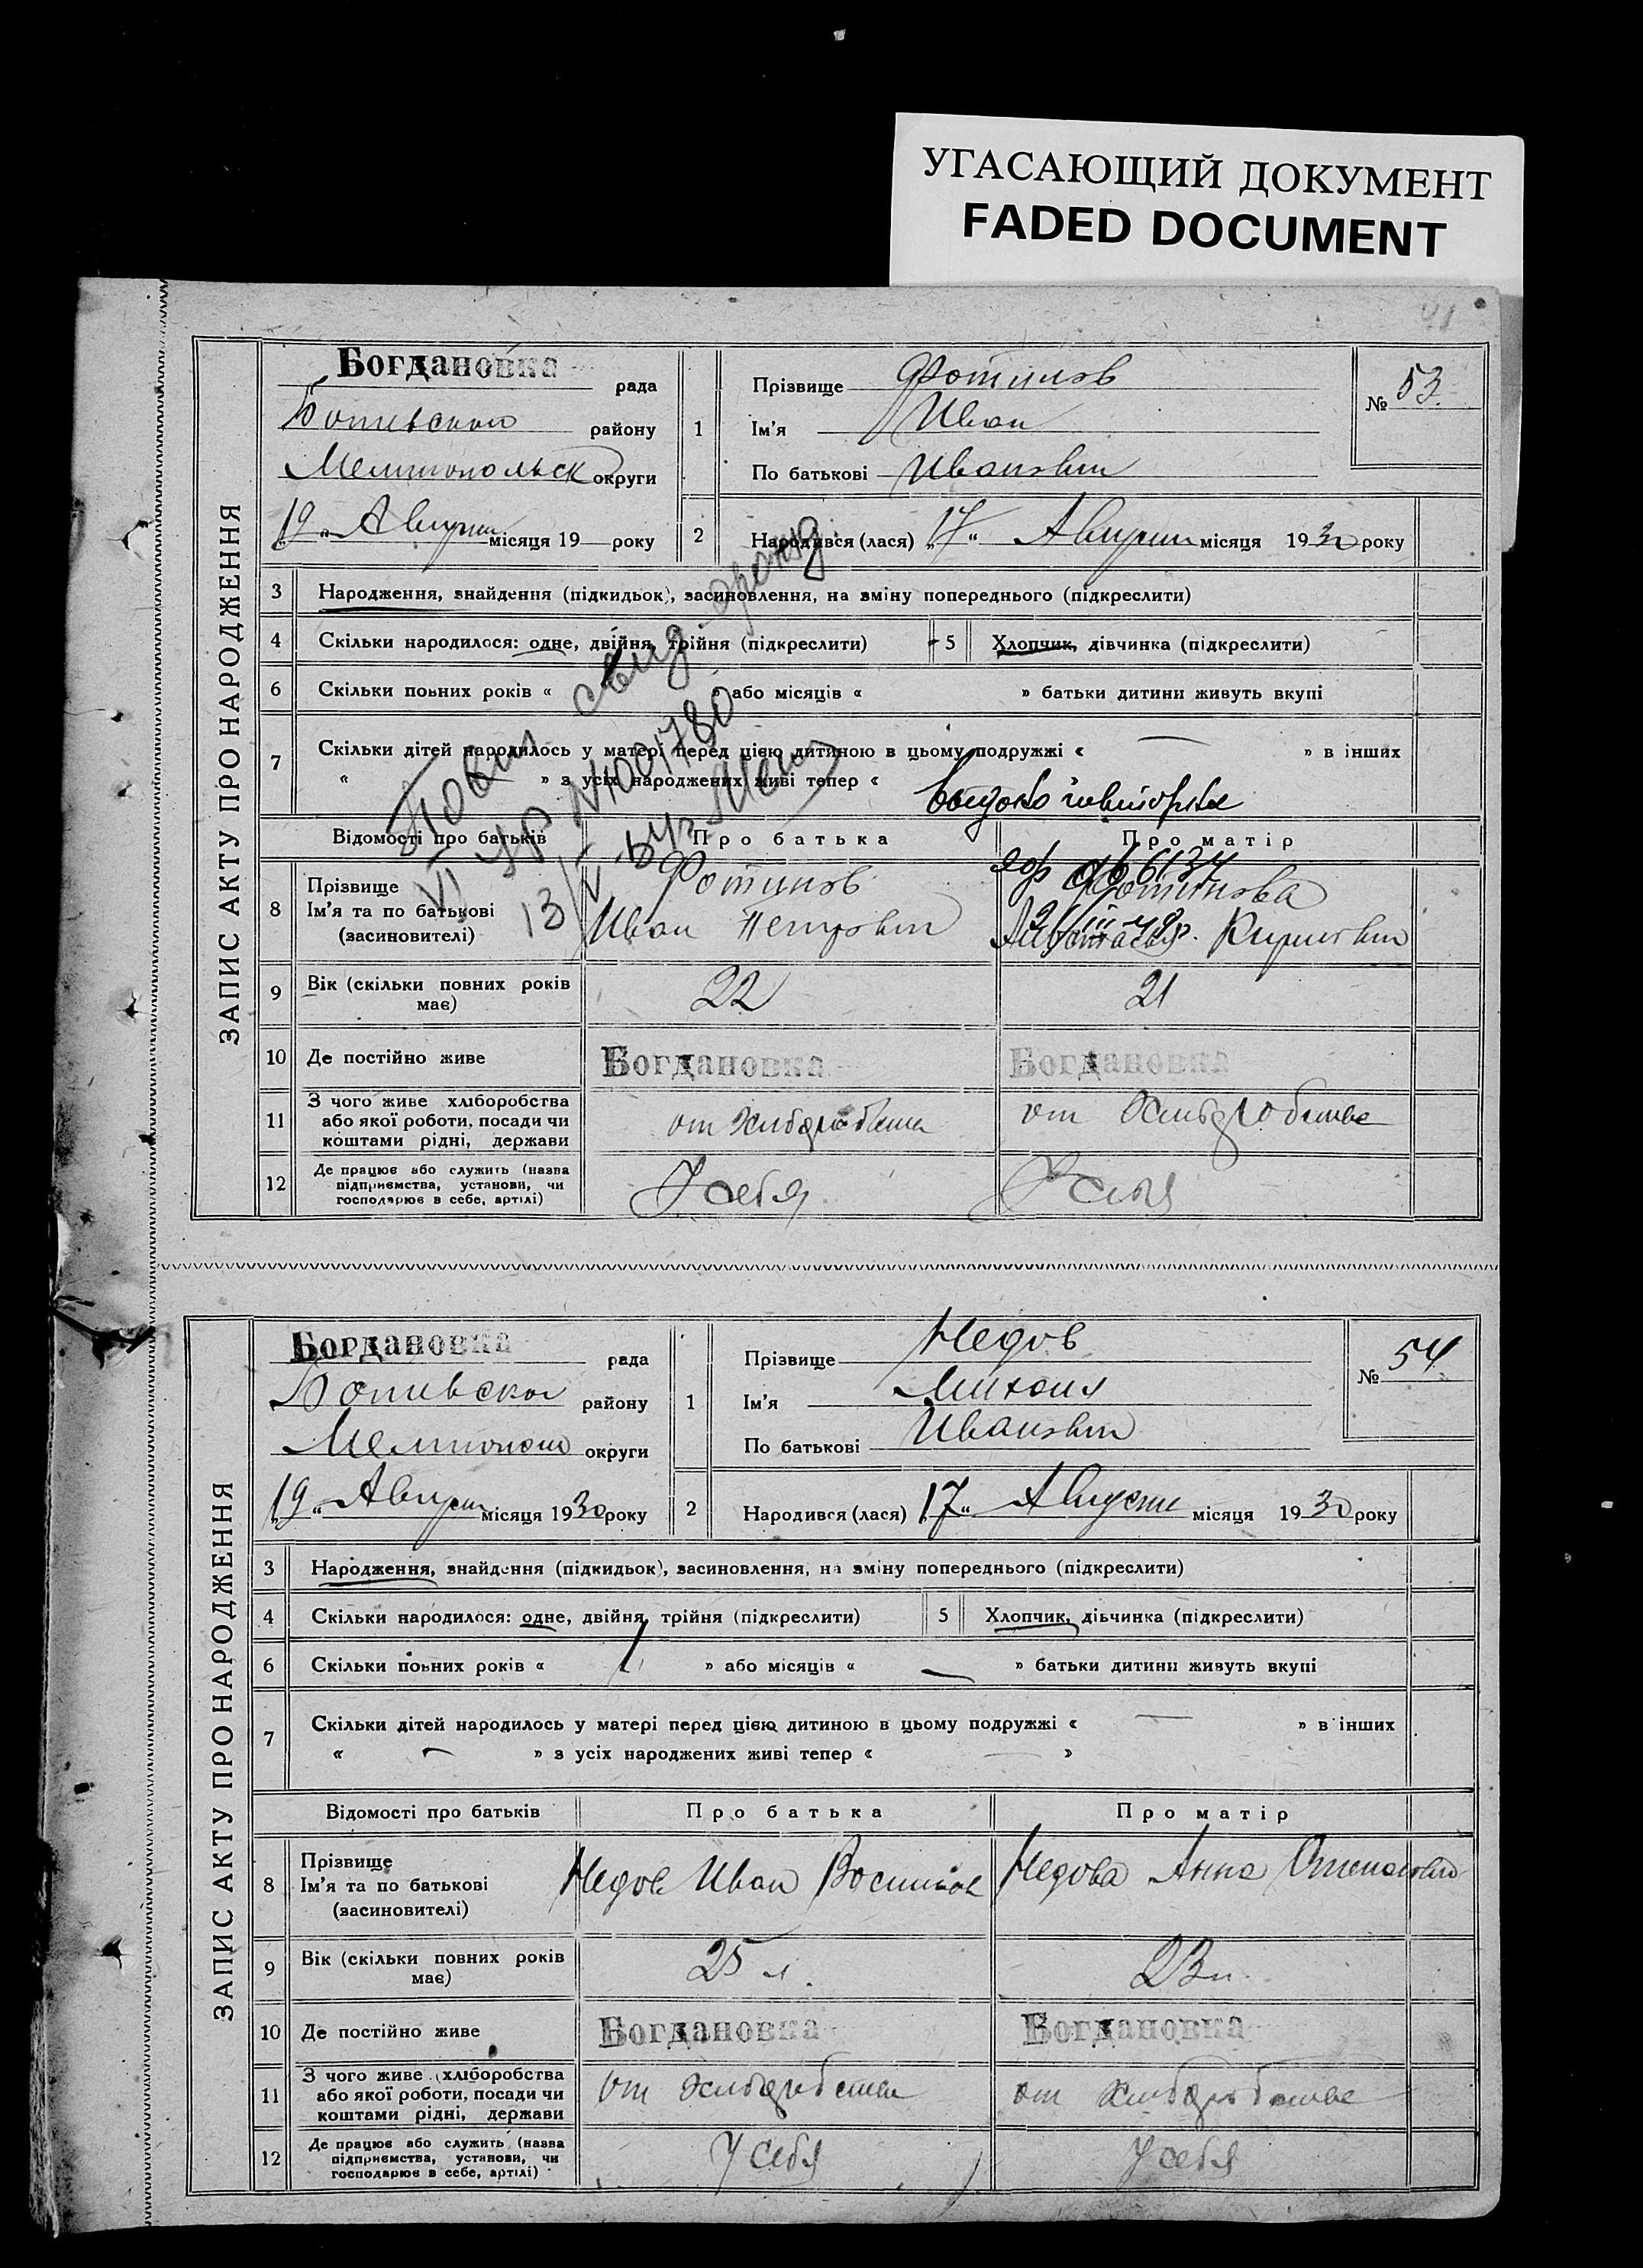 УГАСАЮЩИЙ ДОКУМЕНТ
FADED DOCUMENT
ЗАПИС АКТУ ПРО НАРОДЖЕННЯ
Богдановка рада
району
Мелитопольск округи
„19“ Августа місяця 19 року
1
Прізвище Фотинов
Ім'я Иван
По батькові Иванович
№ 53
2 Народився (лася) „17“ Августа місяця 1930 року
3 Народження, знайдення (підкидьок), засиновлення, на зміну попереднього (підкреслити)
4 Скільки народилося: одне, двійня, трійня (підкреслити) 5 Хлопчик, дівчинка (підкреслити)
6 Скільки повних років « 1 » або місяців « » батьки дитини живуть вкупі
7 Скільки дітей народилось у матері перед цією дитиною в цьому подружжі « — » в інших
« » з усіх народжених живі тепер «
Відомості про батьків Про батька Про матір
8 Прізвище
Ім'я та по батькові
(засиновителі)
Фотинов
Иван Петрович
Фотинова
9 Вік (скільки повних років має) 22 21
10 Де постійно живе Богдановка Богдановка
11 З чого живе хліборобства
або якої роботи, посади чи
коштами рідні, держави
от Хлиборобства от Хлиборобства
12 Де працює або служить (назва
підприємства, установи, чи
господарює в себе, артілі)
У себя У себя
ЗАПИС АКТУ ПРО НАРОДЖЕННЯ
Богдановка рада
району
округи
„19“ Августа місяця 1930 року
1
Прізвище Недов
Ім'я Михаил
По батькові Иванович
№ 54
2 Народився (лася) „17“ Августа місяця 1930 року
3 Народження, знайдення (підкидьок), засиновлення, на зміну попереднього (підкреслити)
4 Скільки народилося: одне, двійня, трійня (підкреслити) 5 Хлопчик, дівчинка (підкреслити)
6 Скільки повних років « 1 » або місяців « — » батьки дитини живуть вкупі
7 Скільки дітей народилось у матері перед цією дитиною в цьому подружжі « — » в інших
« — » з усіх народжених живі тепер « — »
Відомості про батьків Про батька Про матір
8 Прізвище
Ім'я та по батькові
(засиновителі)
Недов Иван Недова Анна
9 Вік (скільки повних років має) 25 л. 23 л.
10 Де постійно живе Богдановка Богдановка
11 З чого живе хліборобства
або якої роботи, посади чи
коштами рідні, держави
от Хлиборобства от Хлиборобства
12 Де працює або служить (назва
підприємства, установи, чи
господарює в себе, артілі)
У себя У себя